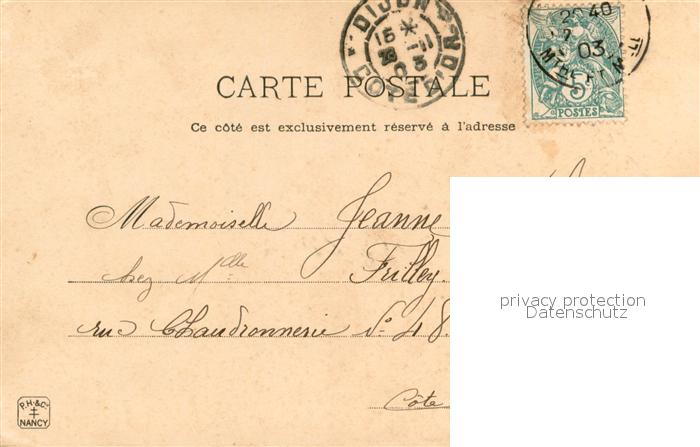 DIJON
CÔTE D'OR
20 40
03
5
POSTES
CARTE POSTALE
Ce côté est exclusivement réservé à l'adresse
Mademoiselle Jeanne
chez Mlle Frilley.
rue Chaudronnerie No 48.
Côte
privacy protection
Datenschutz
P.H.&Co
NANCY